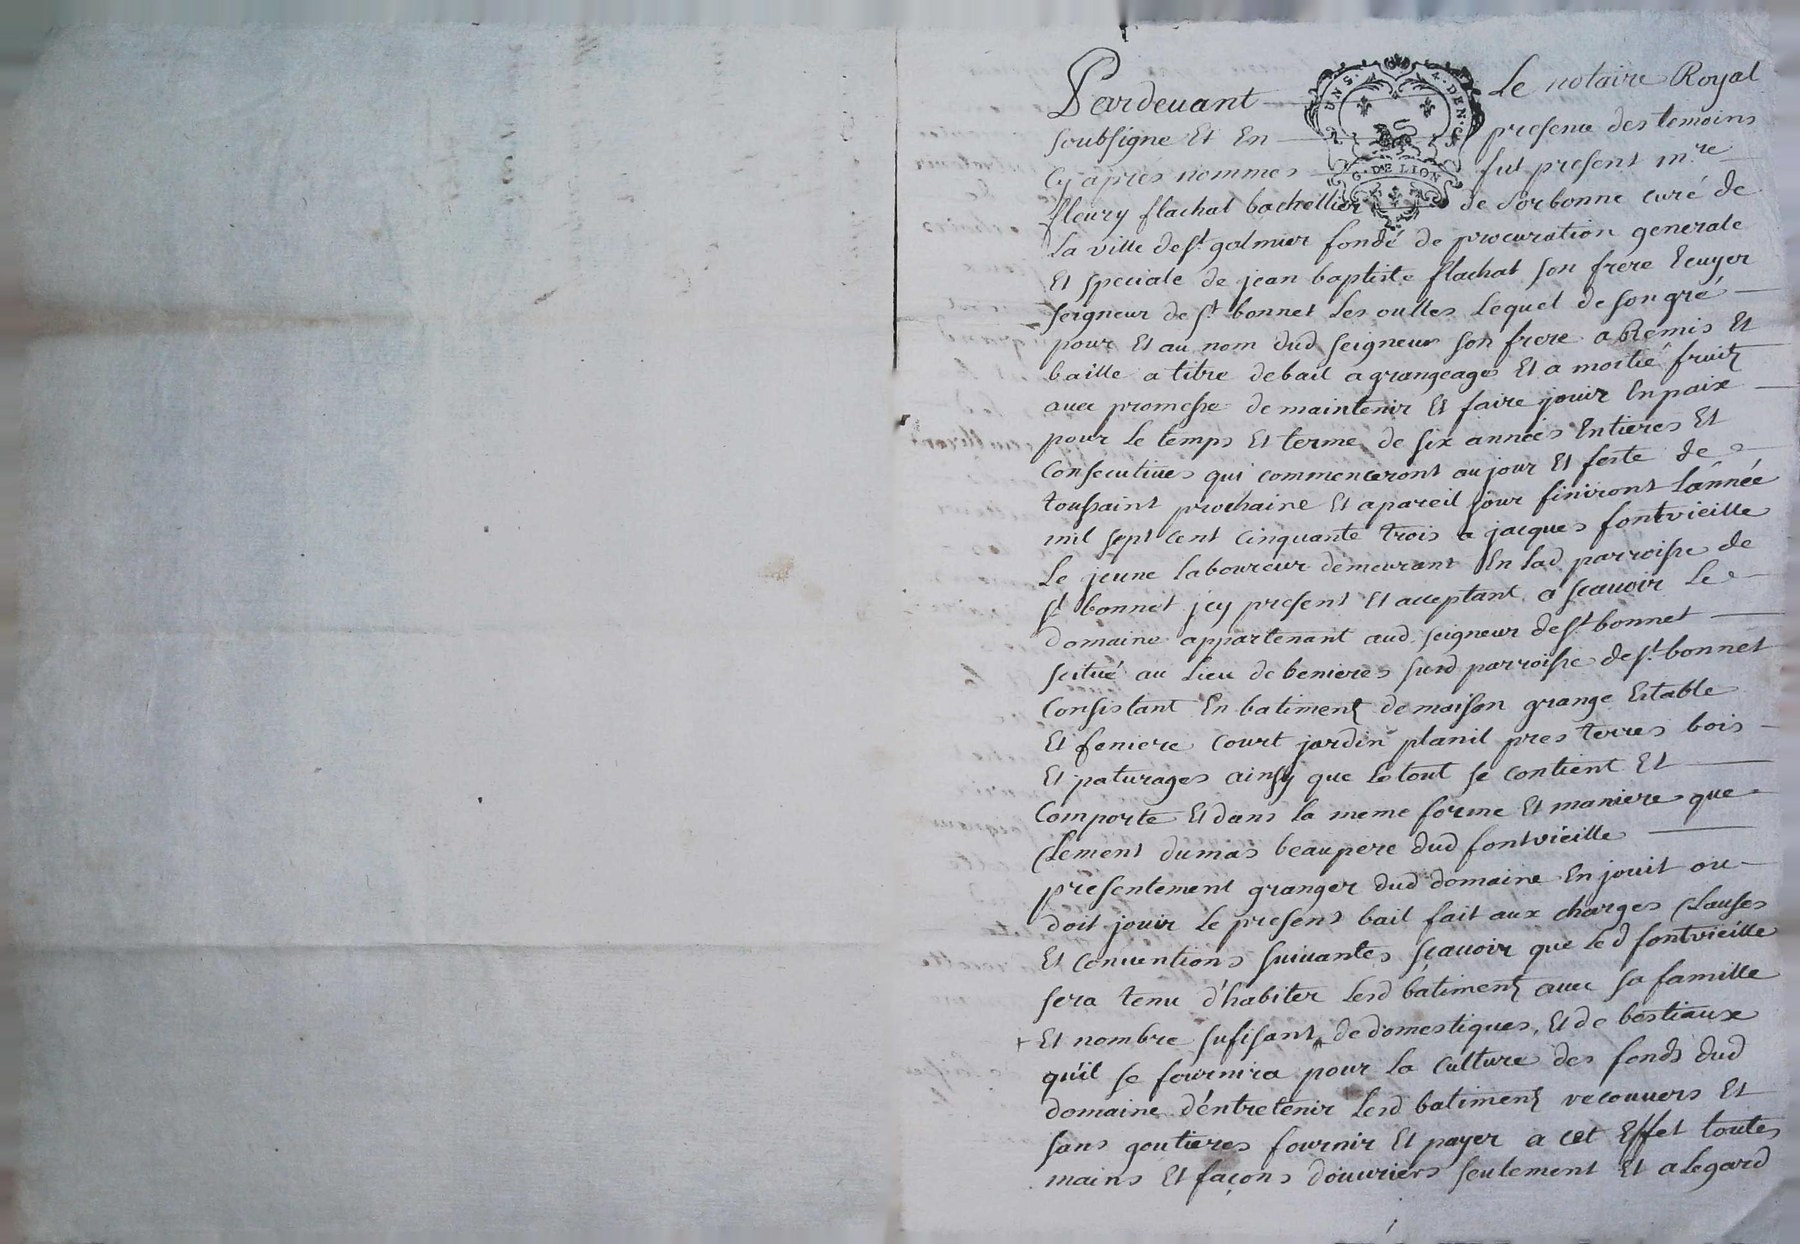 Pardevant Le notaire Royal
UN S. 4. DEN.
soubsigne Et En presence des temoins
G. DE LION
Cy après nommes fut present mre
fleury flachat bachellier de Sorbonne curé de
La ville de st galmier fondé de procuration generale
Et speciale de jean baptiste flachat son frere Ecuyer
seigneur de st bonnet Les oulles Lequel de son gré
pour Et au nom dud seigneur son frere a Remis Et
baille a titre de bail a grangeage Et a moitié fruitz
avec promesse de maintenir Et faire jouir En paix
pour Le temps Et terme de six années Entieres Et
Consecutives qui commenceront au jour Et feste de
toussaint prochaine Et a pareil jour finiront L'année
mil sept cent cinquante trois a jacques fontvieille
Le jeune Laboureur demeurant En Lad parroisse de
st bonnet jcy present Et acceptant a scavoir Le
domaine appartenant aud. seigneur de st bonnet
scitué au Lieu de benieres susd parroisse de st bonnet
Consistant En batimentz de maison grange Estable
Et feniere Court jardin planil pres terres bois
Et paturages ainsy que Le tout se contient Et
Comporte Et dans La meme forme Et maniere que
Clement dumas beaupere dud fontvieille
presentement granger dud domaine En jouit ou
doit jouir Le present bail fait aux charges Clauses
Et conventions suivantes scavoir que Led fontvieille
sera tenu d'habiter Lesd bâtimentz avec sa famille
+ Et nombre sufisant de domestiques, Et de bestiaux
qu'il se fournira pour La Culture des fonds dud
domaine d'entretenir Lesd batimentz recouvers Et
sans goutieres fournir Et payer a cet Effet toutes
mains Et façons d'ouvriers seulement Et a Legard